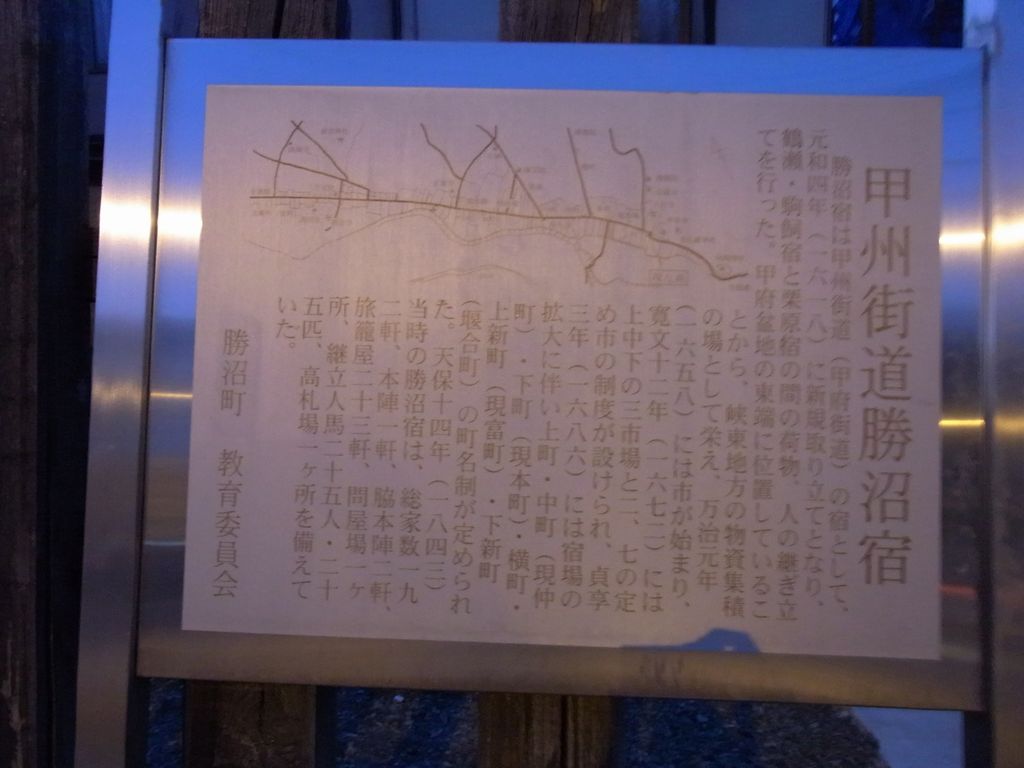 甲州街道勝沼宿
勝沼宿は甲州街道（甲府街道）の宿として、
元和四年（一六一八）に新規取り立てとなり、
鶴瀬・駒飼宿と栗原宿の間の荷物、人の継ぎ立
てを行った。甲府盆地の東端に位置しているこ
とから、峡東地方の物資集積
の場として栄え、万治元年
（一六五八）には市が始まり、
寛文十二年（一六七二）には
上中下の三市場と二、七の定
め市の制度が設けられ、貞享
三年（一六八六）には宿場の
拡大に伴い上町・中町（現仲
町）・下町（現本町）・横町・
上新町（現富町）・下新町
（堰合町）の町名制が定められ
た。天保十四年（一八四三）
当時の勝沼宿は、総家数一九
二軒、本陣一軒、脇本陣二軒、
旅籠屋二十三軒、問屋場一ヶ
所、継立人馬二十五人・二十
五匹、高札場一ヶ所を備えて
いた。
勝沼町　教育委員会